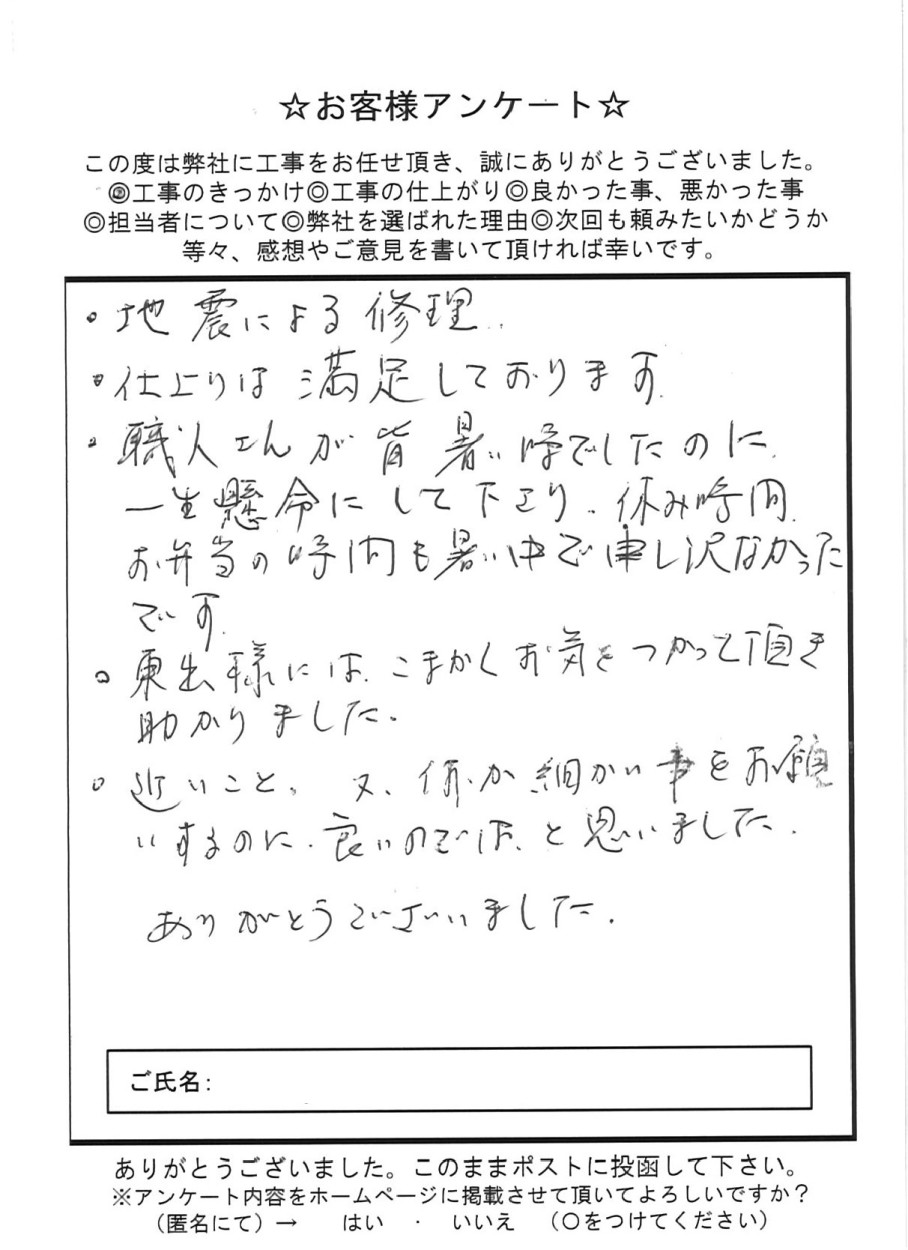 ☆お客様アンケート☆
この度は弊社に工事をお任せ頂き、誠にありがとうございました。
◎工事のきっかけ◎工事の仕上がり◎良かった事、悪かった事
◎担当者について◎弊社を選ばれた理由◎次回も頼みたいかどうか
等々、感想やご意見を書いて頂ければ幸いです。
。地震による修理.
。仕上りは満足しております.
。職人さんが皆暑い時でしたのに.
一生懸命にして下さり、休み時間.
お弁当の時間も暑い中で申し沢なかった
です.
。東出様には、こまかくお気をつかって頂き
助かりました.
。近いこと、又、何か細かい事をお願
いするのに、良いのでは、と思いました.
ありがとうございました.
ご氏名:
ありがとうございました。このままポストに投函して下さい。
※アンケート内容をホームページに掲載させて頂いてよろしいですか？
（匿名にて）→ はい ・ いいえ （○をつけてください）